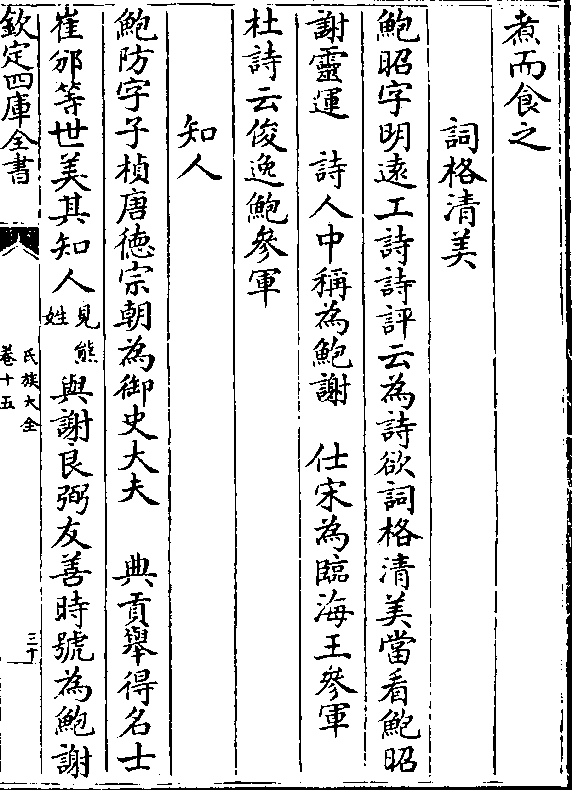 煮而食之
詞格清美
鮑昭字明遠工詩詩評云為詩欲詞格清美當看鮑昭
謝靈運　詩人中稱為鮑謝　仕宋為臨海王參軍
杜詩云俊逸鮑參軍
知人
鮑防字子楨唐德宗朝為御史大夫　典貢舉得名士
崔邠等世美其知人見熊姓　與謝良弼友善時號為鮑謝
欽定四庫全書
氏族大全
卷十五
三十